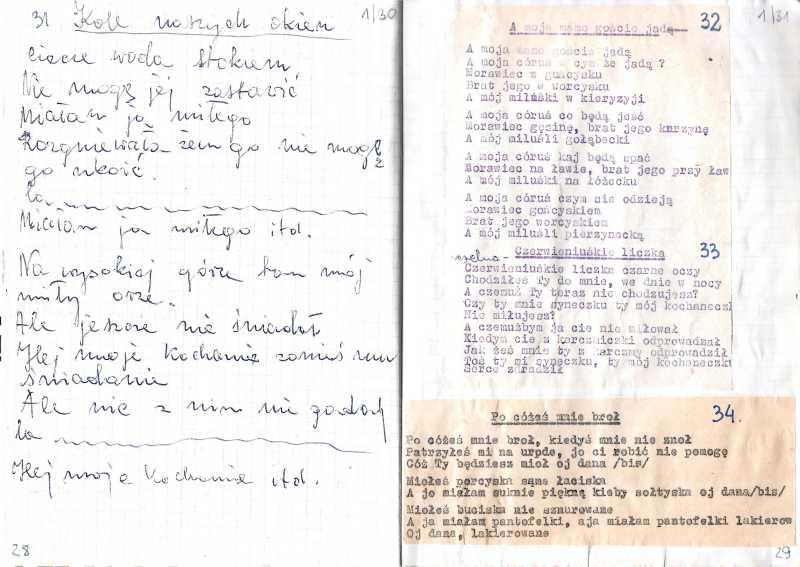 31 Kole naszych okien
1/30
ciecze woda stokiem
Nie mogę jej zastawić
Miałam ja miłego
Rozgniewała żem go nie mogę
go ukoić.
la
Miałam ja miłego itd.
Na wysokiej górze tam mój
miły orze.
Ale jeszcze nie śniadoł
Hej moje kochanie zanieś mu
śniadanie
Ale nic z nim nie godoj
la
Hej moje kochanie itd.
28
A moja mamo goście jadą
32
1/31
A moja mamo goście jadą
A moja córuś w czym że jadą ?
Morawiec w guńcysku
Brat jego w worcysku
A mój miluśki w kieryzyji
A moja córuś co będą jeść
Morawiec gęsinę, brat jego kurzynę
A mój miluśli gołąbecki
A moja córuś kaj będą spać
Morawiec na ławie, brat jego przy ław
A mój miluśki na łóżecku
A moja córuś czym sie odzieją
Morawiec gońcyskiem
Brat jego worcyskiem
A mój miluśli pierzynecką
Czerwieniuśkie liczka
33
Czerwieniuśkie liczka czarne oczy
Chodziłeś Ty do mnie, we dnie w nocy
A czemuż Ty teraz nie chodzujesz?
Czy ty mnie syneczku ty mój kochaneczk
Nie miłujesz?
A czemużbym ja cie nie miłował
Kiedym cie z karczmiczki odprowadzał
Jak żeś mnie ty z karczmy odprowadził
Toś ty mi syneczku, ty mój kochaneczku
Serce zdradził
Po cóżeś mnie broł
34.
Po cóżeś mnie broł, kiedyś mnie nie znoł
Patrzyłeś mi na urpde, jo ci robić nie pomogę
Cóż Ty będziesz mioł oj dana /bis/
Miołeś porcyska same łaciska
A jo miałam suknie piękną kieby sołtyska oj dana/bis/
Miołeś buciska nie sznurowane
A ja miałam pantofelki, aja miałam pantofelki lakierow
Oj dana, lakierowane
29